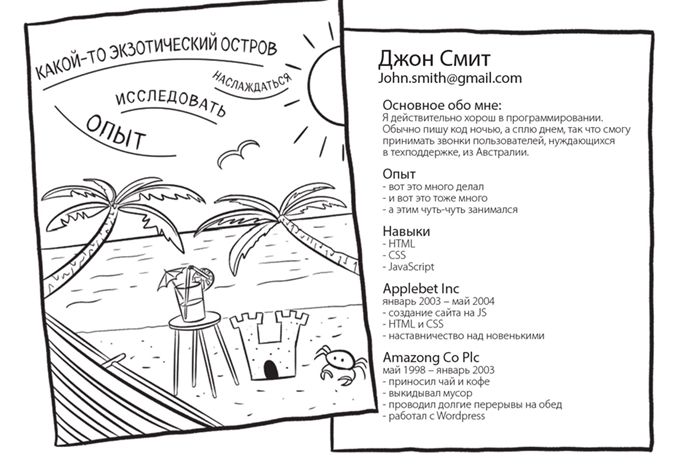 КАКОЙ-ТО ЭКЗОТИЧЕСКИЙ ОСТРОВ
НАСЛАЖДАТЬСЯ
ИССЛЕДОВАТЬ
ОПЫТ
Джон Смит
John.smith@gmail.com
Основное обо мне:
Я действительно хорош в программировании.
Обычно пишу код ночью, а сплю днем, так что смогу
принимать звонки пользователей, нуждающихся
в техподдержке, из Австралии.
Опыт
- вот это много делал
- и вот это тоже много
- а этим чуть-чуть занимался
Навыки
- HTML
- CSS
- JavaScript
Applebet Inc
январь 2003 – май 2004
- создание сайта на JS
- HTML и CSS
- наставничество над новенькими
Amazong Co Plc
май 1998 – январь 2003
- приносил чай и кофе
- выкидывал мусор
- проводил долгие перерывы на обед
- работал с Wordpress